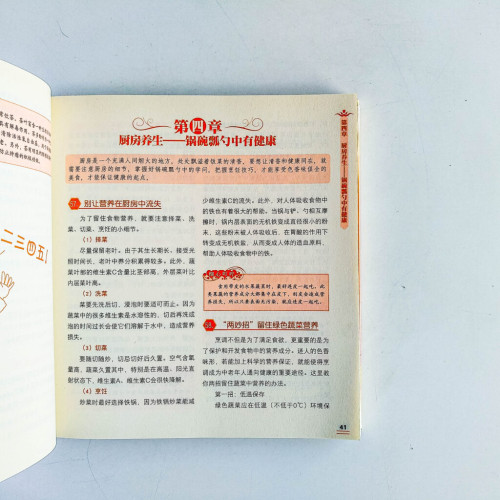 二三四五
第四章
厨房养生——锅碗瓢勺中有健康
厨房是一个充满人间烟火的地方，处处飘溢着饭菜的清香。要想让清香和健康同在，就
需要注意厨房的细节，掌握好锅碗瓢勺中的学问，把握烹饪技巧，才能享受色香味俱全的
美食，才能保证健康的起点。
别让营养在厨房中流失
为了留住食物营养，就要注意择菜、洗
菜、切菜、烹饪的小细节。
（1）择菜
尽量保留老叶。由于其生长期长，接受光
照时间长，老叶中养分积累得较多。此外，蔬
菜叶部的维生素C含量比茎部高，外层菜叶比
内层菜叶高。
（2）洗菜
菜要先洗后切，灌泡时要适可而止。因为
蔬菜中的很多维生素是水溶性的，切后再洗或
泡的时间过长会使它们溶解于水中，造成营养
损失。
（3）切菜
要随切随炒，切忌切好后久置。空气含氧
量高，蔬菜久置其中，特别是在高温、阳光直
射状态下，维生素A、维生素C会很快降解。
（4）烹饪
炒菜时最好选择铁锅，因为铁锅炒菜能减
少维生素C的流失。此外，对人体吸收食物中
的铁也有着很大的帮助。当锅与铲、勺相互摩
擦时，锅内层表面的无机铁变成直径很小的粉
末，这些粉末被人体吸收后，在胃酸的作用下
转变成无机铁盐，从而变成人体的造血原料，
帮助人体吸收食物中的铁。
食用带皮的水果蔬菜时，最好连皮一起吃。此
“两妙招”留住绿色蔬菜营养
烹调不但是为了满足食欲，更重要的是为
了保护和开发食物中的营养成分。迷人的色香
味形，若能加上科学的营养保证，就能使得烹
调成为中老年人通向健康的重要途径。这里教
你两招留住蔬菜中营养的办法。
第一招：低温保存
绿色蔬菜应在低温（不低于0℃）环境保
第四章 厨房养生——锅碗瓢勺中有健康
41